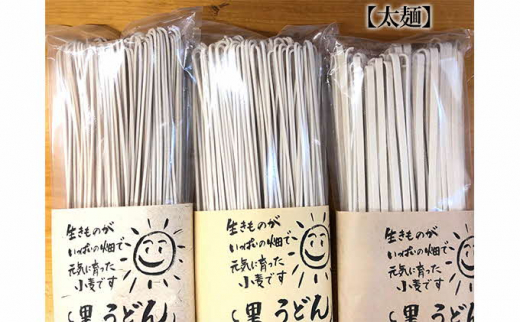 【太麺】
生きものが
いっぱいの畑で
元気に育った
小麦です
黒うどん
生きものが
いっぱいの畑で
元気に育った
小麦です
黒うどん
生きものが
いっぱいの畑で
元気に育った
小麦です
黒うどん